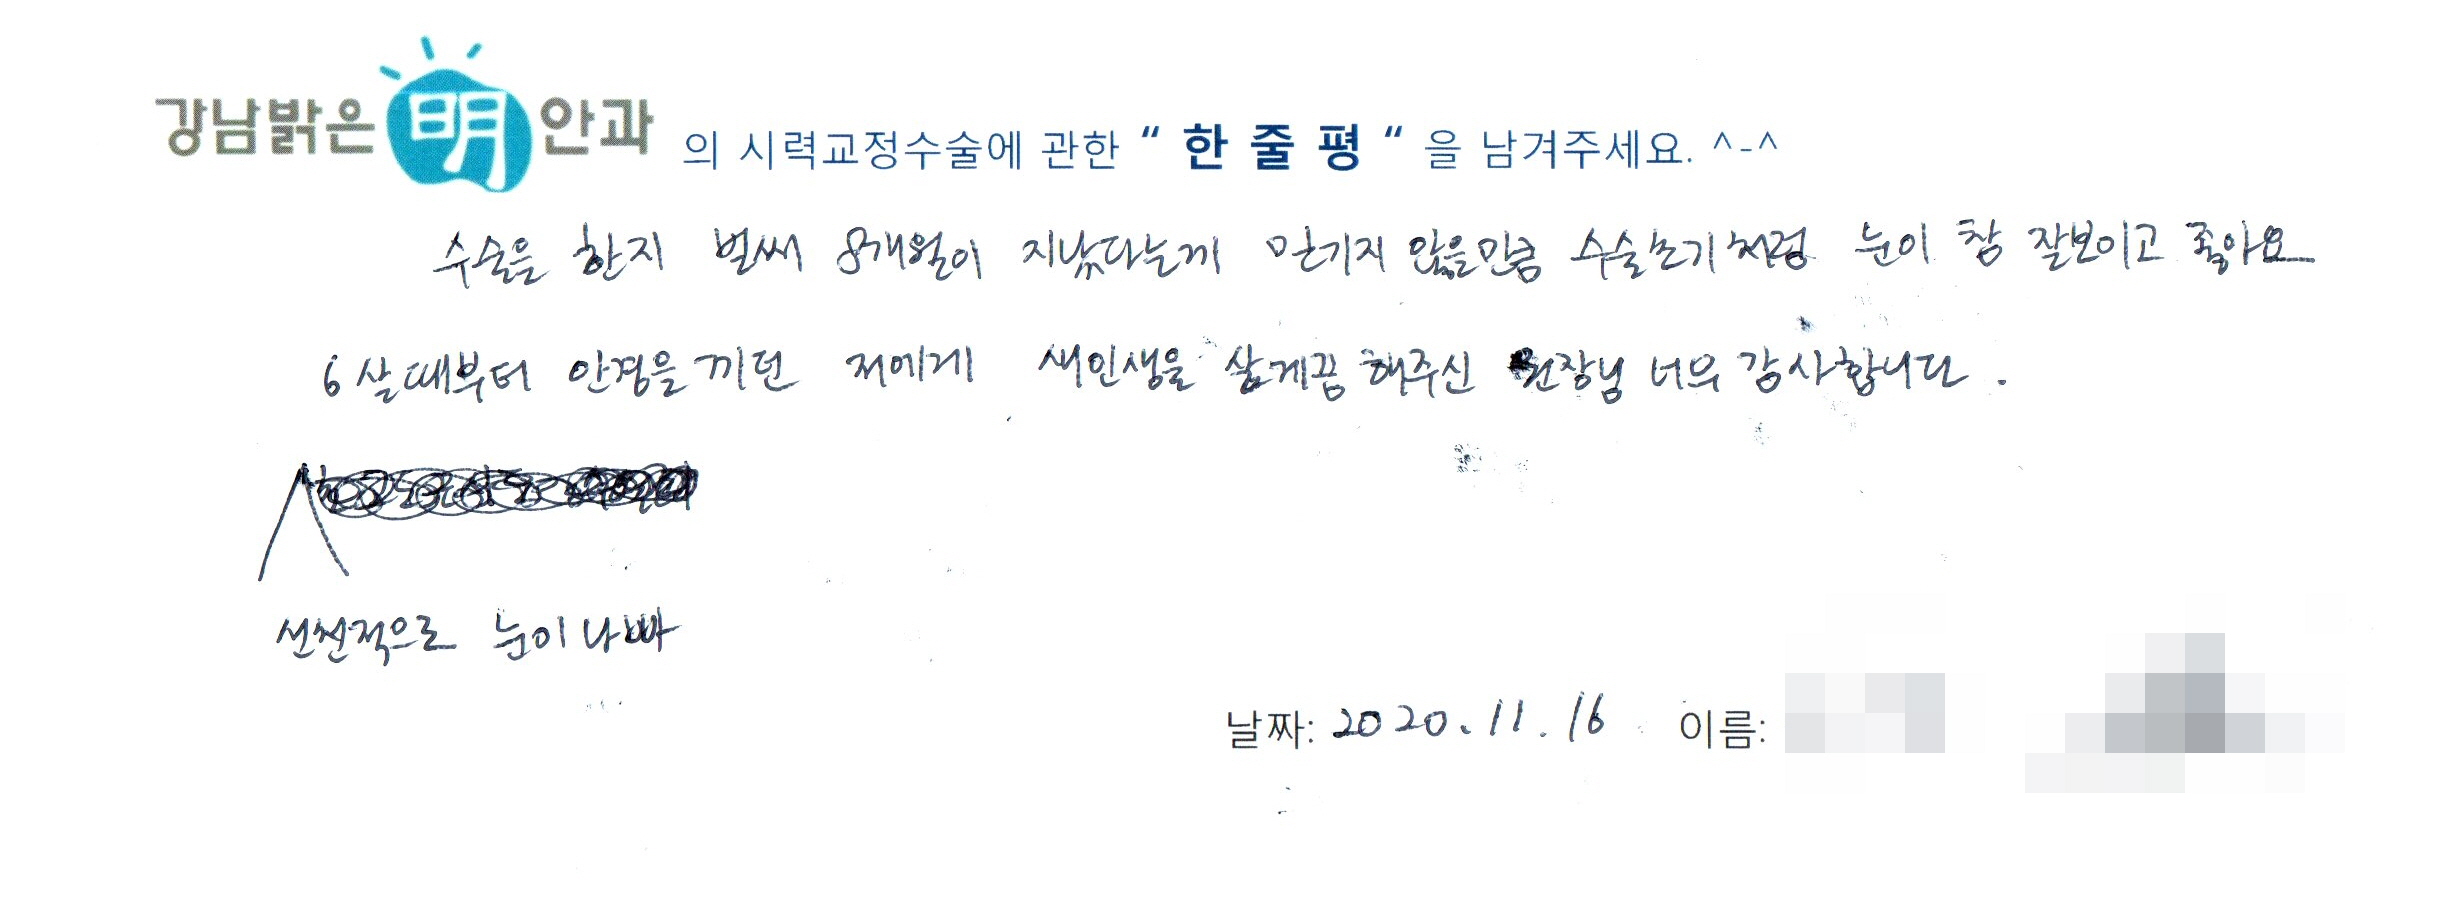 강남밝은 明 안과 의 시력교정수술에 관한 “ 한 줄 평 “ 을 남겨주세요. ^-^
수술을 한지 벌써 8개월이 지났다는게 믿기지 않을만큼 수술초기처럼 눈이 참 잘보이고 좋아요
6살때부터 안경을 끼던 저에게 새인생을 살게끔 해주신 원장님 너무 감사합니다.
선천적으로 눈이 나빠
날짜: 2020.11.16 이름: